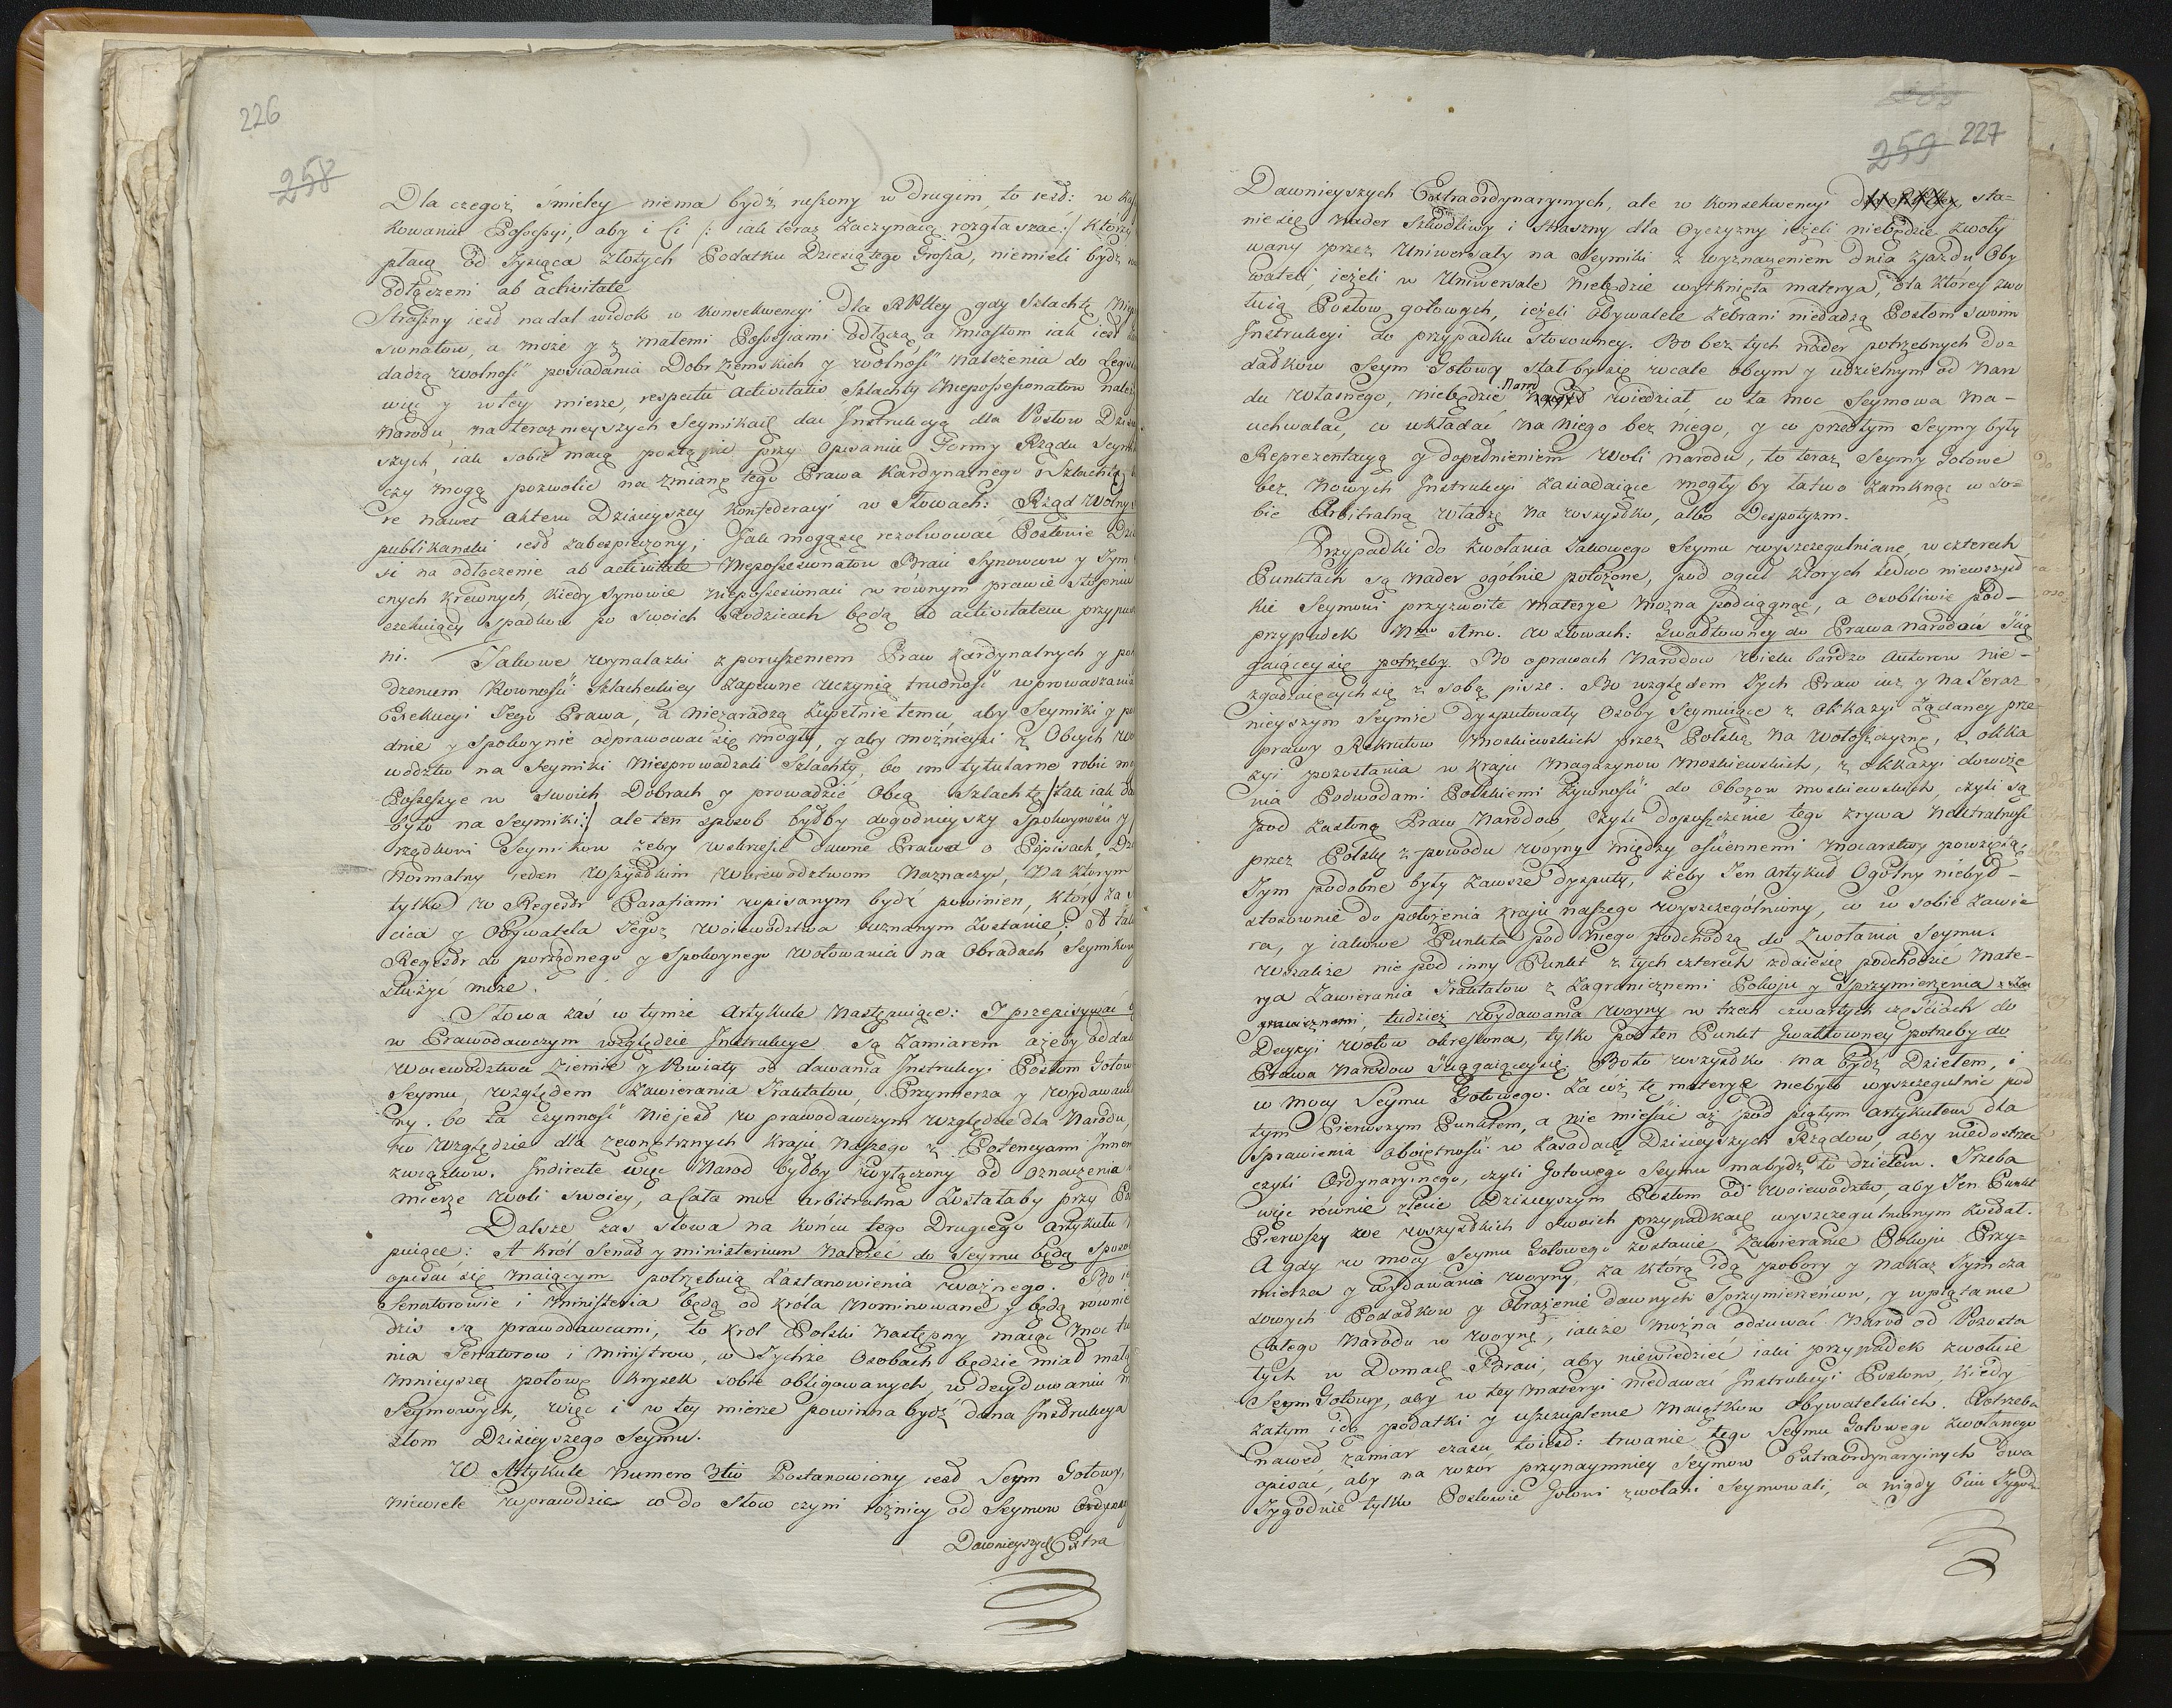 226
258
Dla czegoż śmieley niema bydź ruszony w drugim, to iest: w
kowaniu Possessyi, aby i Ci /: iak teraz zaczynaią rozgłaszać :/ którzy
płacą od Tysiąca złotych Podatku Dziesiątego Grosza, niemieli bydź
odłączeni ab activitate
Straszny iest nadal widok w konsekwencyi dla RPltey gdy Szlachtę
sionatów, a może y z małemi Possessiami odłączą, a miastom iak iest
dadzą wolność posiadania Dobr Ziemskich y wolność należenia do
więc y w tey mierze, respectu Activitatis Szlachty Niepossesionatow
Narodu, na teraznieyszych Seymikach dać Instrukcyą dla Posłow
szych, iak sobie maią postąpić przy opisaniu Formy Rządu
czy mogą pozwolić na zmianę tego Prawa Kardynalnego o Szlachcie,
re nawet Aktem Dzisieyszey Konfederacyi w Słowach: Rząd Wolny
publikanski iest zabespieczony; Jak mogą się rezolwować Posłowie
si na odłączenie ab activitate Niepossesionatow Braci Synowcow y
cnych krewnych, kiedy Synowie niepossesionaci w równym prawie stopniu
czekaiący spadkow po swoich Rodzicach będą ad activitatem
ni. Takowe wynalazki z poruszeniem Praw Kardynalnych y
dzeniem Rowności Szlacheckiey zapewne uczynią trudność w prowadzaniu
Exekucyi Tego Prawa, a niezaradzą zupełnie temu, aby Seymiki
dnie y spokoynie odprawować się mogły, y aby możnieysi z Obcych
wodztw na Seymiki niesprowadzali Szlachty, bo im tytularne robić
Possessye w swoich Dobrach y prowadzić obcą Szlachtę /: tak iak
było na Seymiki :/ ale ten sposob byłby dogodnieyszy Spokoyności y
rządkowi Seymikow żeby wskrzesić dawne Prawa o Popisach,
Normalny ieden wszystkim Woiewodztwom Naznaczyć, na którym
tylko w Regestr Parafiami wpisanym bydź powinien, który za
cica y Obywatela Tegoż Woiewodztwa uznanym zostanie; A
Regestr do porządnego y Spokoynego wotowania na Obradach
służyć może.
Słowa zaś w tymże Artykule następuiące: I przepisywać
w Prawodawczym względzie Instrukcye są zamiarem ażeby
Woiewodztwa Ziemie y Powiaty od dawania Instrukcyi Posłom
Seymu, względem zawierania Traktatow, Przymierza y
ny. bo ta czynność niejest w prawodawczym względzie dla Narodu,
w względzie dla zewnętrznych kraju Naszego z Potencyami
związkow. Indirecte więc Narod byłby wyłączony od oznaczenia
mierze woli swoiey, a cała moc arbitralna zostałaby przy
Dalsze zaś słowa na końcu tego Drugiego Artykułu
puiące: A Król Senat y ministerium należeć do Seymu będą
opisać się maiącym potrzebuią zastanowienia ważnego.
Senatorowie i ministeria będą od króla nominowane y będą rownie
dziś są prawodawcami, to krol Polski następny maiąc moc
nia Senatorow i ministrow, w Tychże Osobach będzie miał
mnieyszą połowę kryzek sobie obligowanych, w decydowaniu
Seymowych, więc i w tey mierze powinna bydź dana Instrukcya
słom Dzisieyszego Seymu.
W Artykule Numero 3tio Postanowiony iest Seym Gotowy,
niewiele wprawdzie co do słow czyni roznicy od Seymow
Dawnieyszych Extra
259 227
Dawnieyszych Extraordynaryinych, ale w konsekwencyi sta-
nie się nader szkodliwy i straszny dla Oyczyzny ieżeli niebędzie zwoły
wany przez Uniwersały na Seymiki z wyznaczeniem dnia zjazdu Oby
wateli, ieżeli w Uniwersale niebędzie wytknięta materya, dla którey zwo
łuią Posłow gotowych, ieżeli Obywatele zebrani niedadzą Posłom swoim
Instrukcyi do przypadku stosowney. Bo bez tych nader potrzebnych do-
datkow Seym Gotowy stałby się wcale obcym y udzielnym od Naro
du własnego, niebędzie Narod wiedział, co ta moc Seymowa ma-
uchwalać, co układać na niego bez niego, y co przedtym Seymy były
Reprezentacyą y dopełnieniem woli narodu, to teraz Seymy Gotowe
bez nowych Instrukcyi zasiadaiące mogły by łatwo zamknąć w so-
bie Arbitralną władzę na wszystko, albo Despotyzm.
Przypadki do zwołania Takowego Seymu wyszczegulniane, w czterech
Punktach są nader ogólnie położone, pod ogół których ledwo niewszyst
kie Seymowi przyzwoite Materye można podciągnąć, a osobliwie pod-
przypadek Nro 1mo. w słowach: Gwałtowney do Prawa narodow ścią
gaiącey się potrzeby. Bo o prawach Narodow wielu bardzo Autorow nie-
zgadzaiących się z sobą pisze. Bo względem Tych Praw iuż y na Teraz
nieyszym Seymie dysputowały Osoby Seymuiące z okkazyi żądaney prze
prawy Rekrutow moskiewskich przez Polskę na Wołoszczyznę, z okka
zyi pozostania w kraju magazynow moskiewskich, z okkazyi dowoże
nia Podwodami Polskiemi żywności do Obozow moskiewskich, czyli są
pod zasłoną Praw Narodow, czyli dopuszczenie tego zrywa Neutralność
przez Polskę z powodu woyny między ościennemi mocarstwy powziętą.
Tym podobne były zawsze dysputy, żeby Ten Artykuł Ogolny niebył-
stosownie do położenia kraju naszego wyszczegulniony, co w sobie zawie
ra, y iakowe Punkta pod niego podchodzą do zwołania Seymu.
Wszakże nie pod inny Punkt z tych czterech zdaie się podchodzić Mate-
rya zawierania Traktatow z zagranicznemi Pokoju y Sprzymierzenia z Za
granicznemi, tudzież wydawania woyny w trzech czwartych częściach do
Decyzyi wotow określona, tylko pod ten Punkt Gwałtowney potrzeby do
Prawa Narodow ściągaiącey się. Bo to wszystko ma bydź Dziełem, i
w mocy Seymu Gotowego. Za coż tę materyę niebyło wyszczegulnić pod
tym Pierwszym Punktem, a nie mieścić aż pod piątym Artykułem dla
sprawienia oboiętności w Zasadach Dzisieyszych Rządow, aby niedostrzec
czyli Ordynaryinego, czyli Gotowego Seymu ma bydź to dziełem. Trzeba
więc równie zlecić Dzisieyszym Posłom od Woiewodztw, aby Ten Punkt
Pierwszy we wszystkich swoich przypadkach wyszczegulnionym został.
A gdy w mocy Seymu Gotowego zostanie Zawieranie Pokoju Przy-
mierza y wydawania woyny, za którą idą pobory y nakaz Tymcza
sowych Podatkow y Obrażenie dawnych Sprzymierzeńcow, y wplątanie
całego Narodu w woynę, iakże można odsuwać Narod od Pozosta
łych w Domach Braci, aby niewiedzieć iaki przypadek zwołuie
Seym Gotowy, aby w tey materyi niedawać Instrukcyi Posłom, kiedy
zatym idą podatki y uszczuplenie maiątkow obywatelskich. Potrzeba
nawet zamiar czasu, to iest: trwanie tego Seymu Gotowego zwołanego
opisać, aby na wzor przynaymniey Seymow Extraordynaryinych dwa
Tygodnie tylko Posłowie Gotowi zwołani Seymowali, a nigdy 6ciu Tygod-